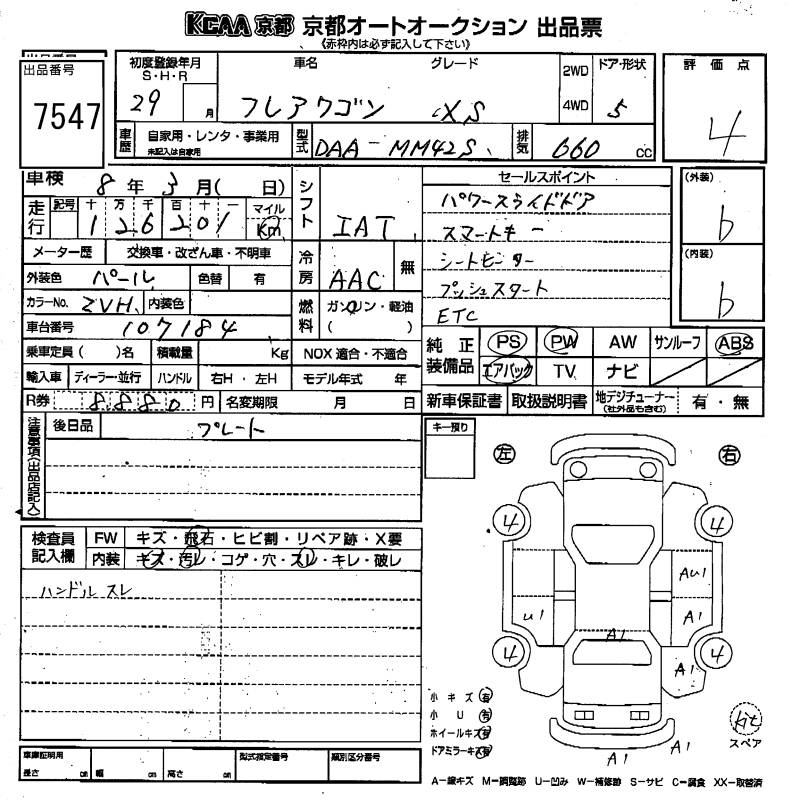 KCAA京都 京都オートオークション 出品票
《赤枠内は必ず記入して下さい》
出品番号 7547
初度登録年月 S・H・R 29 月
車名 フレアワゴン
グレード XS
2WD 4WD
ドア・形状 5
評価点 4
車歴 自家用・レンタ・事業用 未記入は自家用
型式 DAA-MM42S
排気 660 cc
車検 8年 3月( 日)
シフト IAT
走行 記号 十 万 千 百 十 一 マイル Km
126201
メーター歴 交換車・改ざん車・不明車
冷房 AAC 無
外装色 パール 色替 有
カラーNo. ZVH 内装色
燃料 ガソリン・軽油 ( )
車台番号 107184
乗車定員 ( )名 積載量 Kg NOX 適合・不適合
輸入車 ディーラー・並行 ハンドル 右H・左H モデル年式 年
R券 8880 円 名変期限 月 日
セールスポイント
パワースライドドア
スマートキー
シートヒーター
プッシュスタート
ETC
(外装) b
(内装) b
純正装備品 PS PW AW サンルーフ ABS
エアバック TV ナビ
新車保証書 取扱説明書 地デジチューナー (社外品も含む) 有・無
注意事項(出品店記入)
後日品 プレート
キー預り
左 右
検査員記入欄
FW キズ・飛石・ヒビ割・リペア跡・X要
内装 キズ・汚レ・コゲ・穴・スレ・キレ・破レ
ハンドル スレ
4 4
AU1
U1 A1
A1
4 A1 4
小キズ 有
小U 有
ホイールキズ 有
ドアミラーキズ 有
A1 A1
kit
スペア
車庫証明用
長さ cm 幅 cm 高さ cm
型式指定番号
類別区分番号
A-線キズ M-調整跡 U-凹み W-補修跡 S-サビ C-腐食 XX-取替済